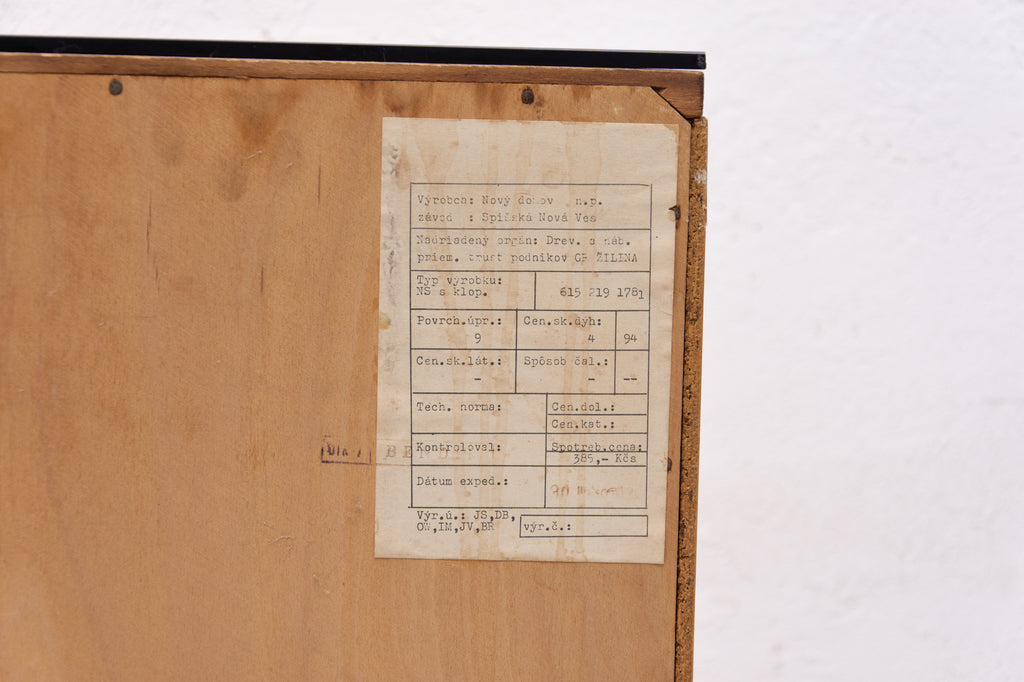 Výrobca: Nový domov n.p.
závod : Spišská Nová Ves
Nadriadený orgán: Drev. a náb.
priem. trust podnikov GR ŽILINA
Typ výrobku:
NS s klop. 615 219 1781
Povrch.úpr.: Cen.sk.dýh:
9 4 94
Cen.sk.lát.: Spôsob čal.:
- - --
Tech. norma: Cen.dol.:
Cen.kat.:
Kontroloval: Spotreb.cena:
385,- Kčs
Dátum exped.:
Výr.ú.: JS,DB,
OW,IM,JV,BR výr.č.: